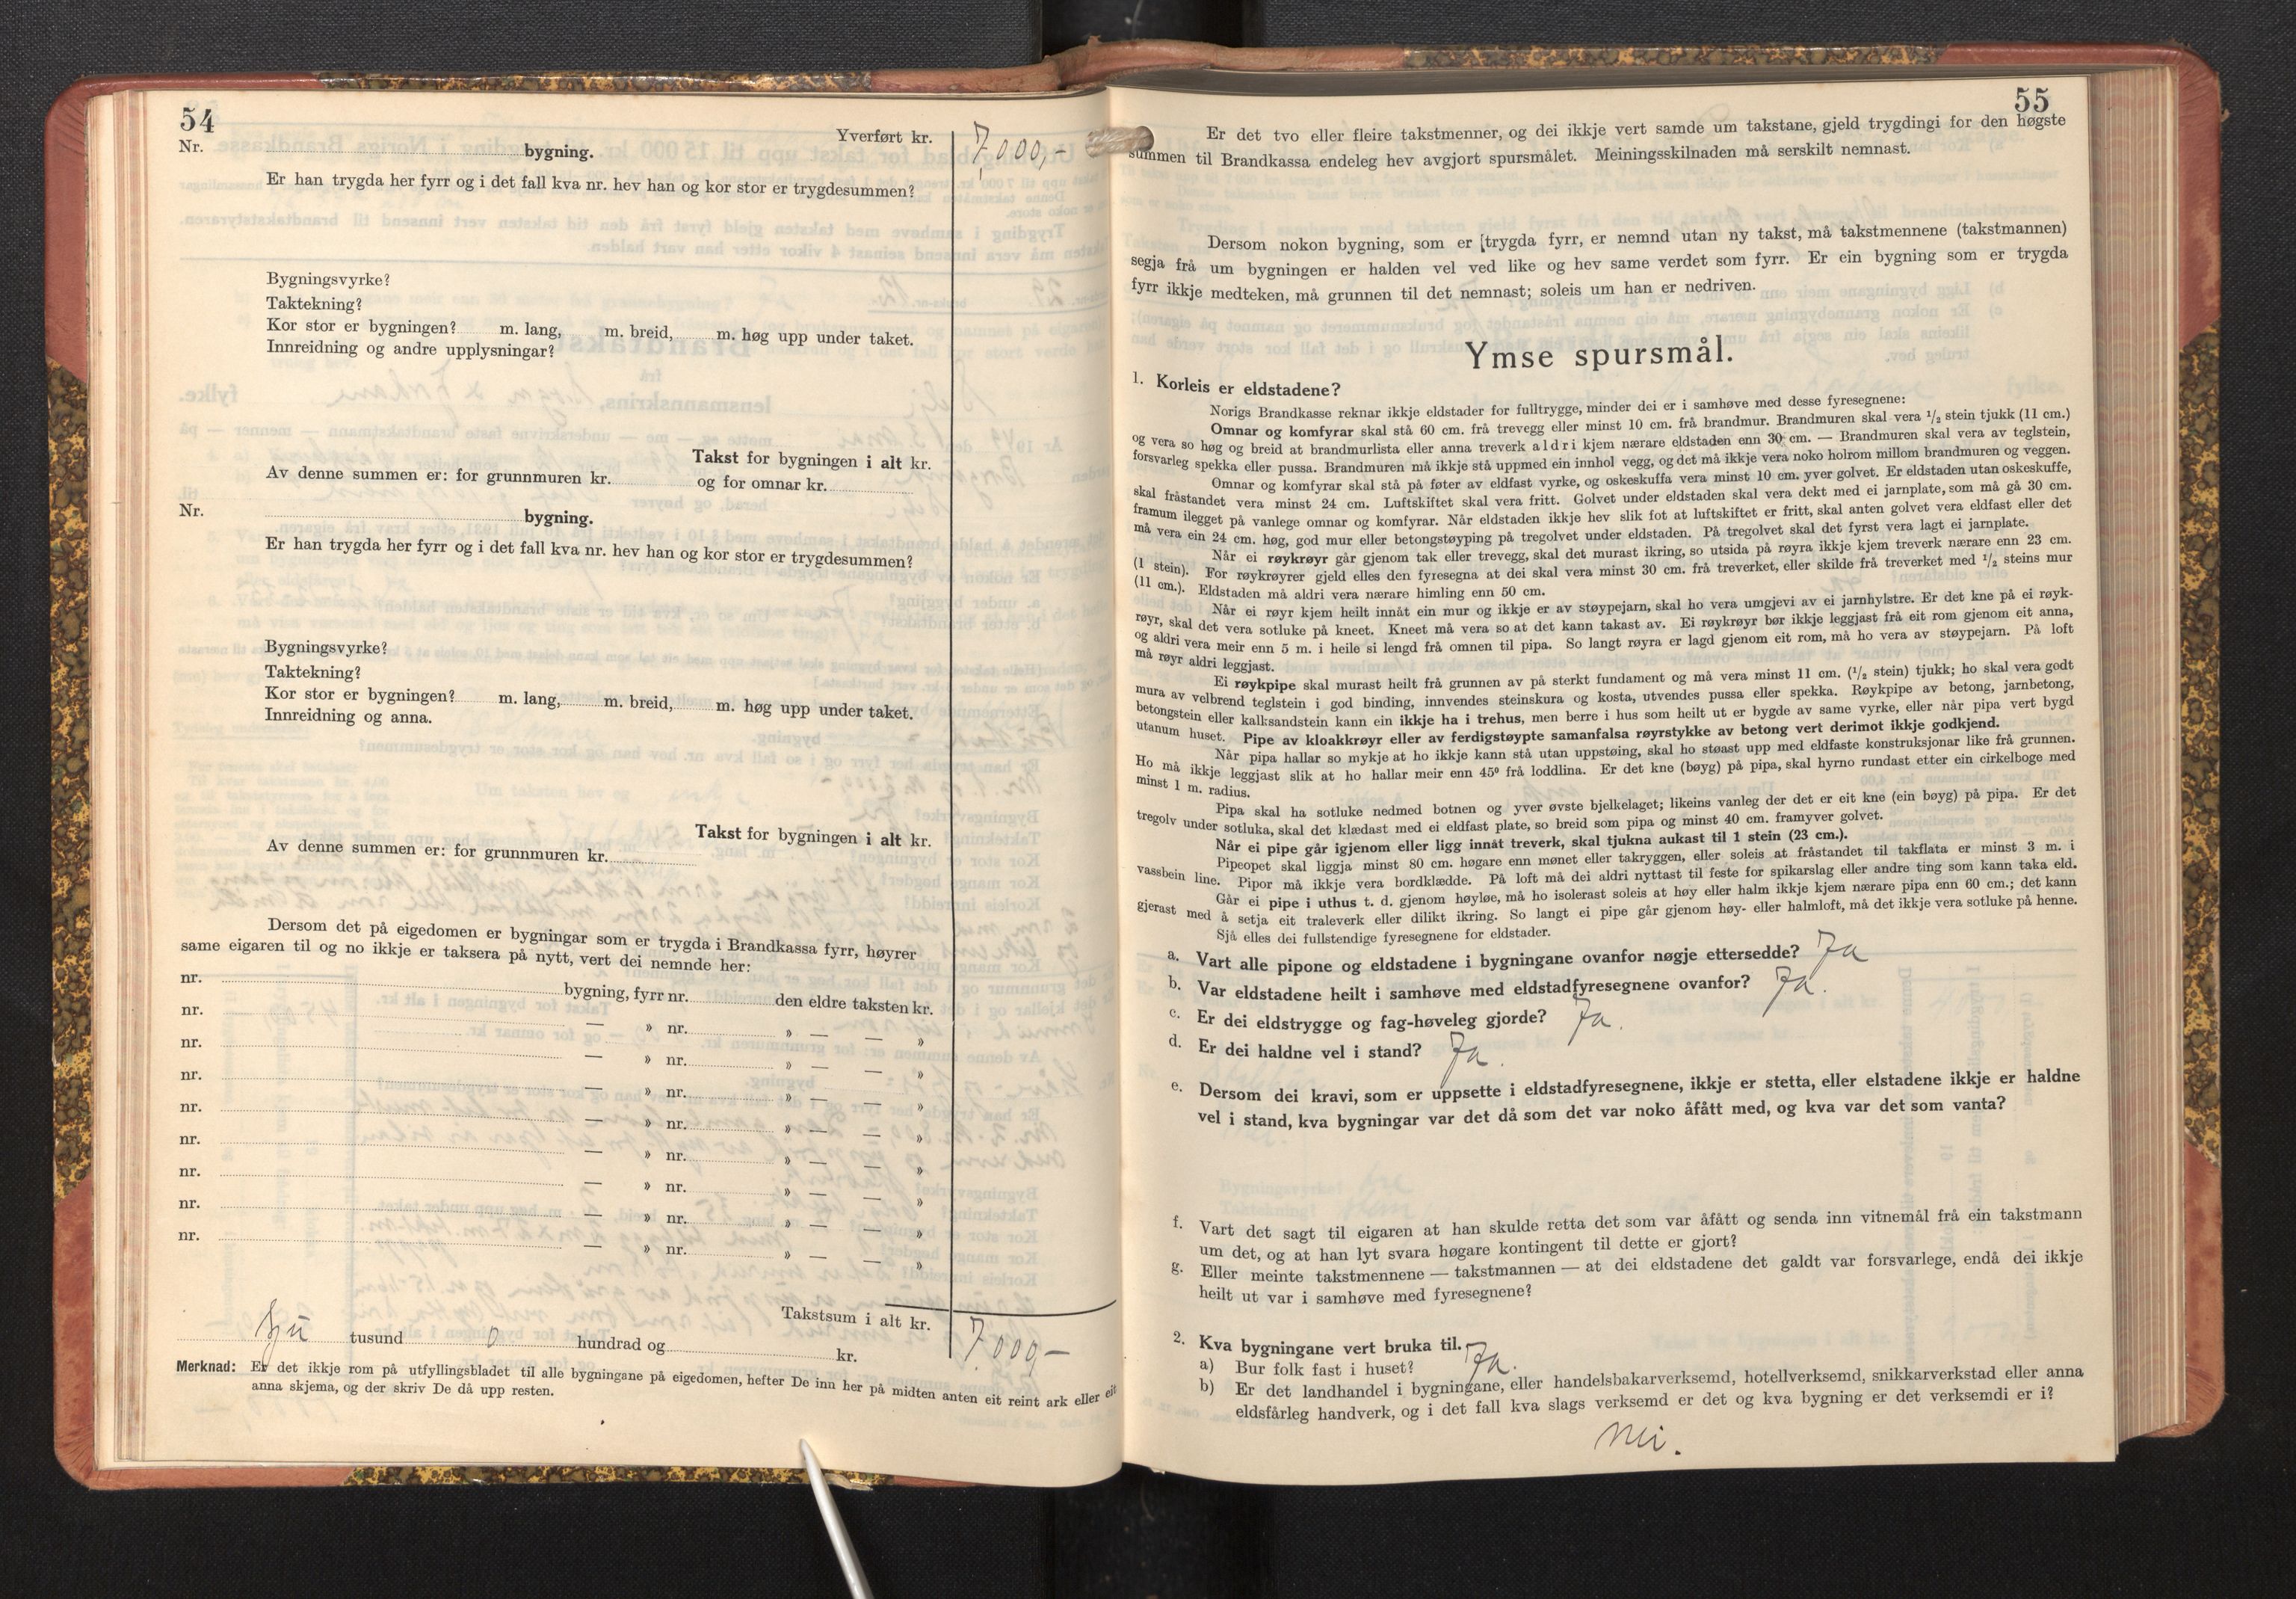 54
Yverført kr. 7.000,-
Nr. bygning.
Er han trygda her fyrr og i det fall kva nr. hev han og kor stor er trygdesummen?
Bygningsvyrke?
Taktekning?
Kor stor er bygningen? m. lang, m. breid, m. høg upp under taket.
Innreidning og andre upplysningar?
Takst for bygningen i alt kr.
Av denne summen er: for grunnmuren kr. og for omnar kr.
Nr. bygning.
Er han trygda her fyrr og i det fall kva nr. hev han og kor stor er trygdesummen?
Bygningsvyrke?
Taktekning?
Kor stor er bygningen? m. lang, m. breid, m. høg upp under taket.
Innreidning og anna.
Takst for bygningen i alt kr.
Av denne summen er: for grunnmuren kr.
Dersom det på eigedomen er bygningar som er trygda i Brandkassa fyrr, høyrer
same eigaren til og no ikkje er taksera på nytt, vert dei nemnde her:
nr. bygning, fyrr nr. den eldre taksten kr.
nr. — » nr. » — — »
nr. — » nr. » — — »
nr. — » nr. » — — »
nr. — » nr. » — — »
nr. — » nr. » — — »
nr. — » nr. » — — »
nr. — » nr. » — — »
nr. — » nr. » — — »
Takstsum i alt kr. 7.000,-
Sju tusund 0 hundrad og kr.
Merknad: Er det ikkje rom på utfyllingsbladet til alle bygningane på eigedomen, hefter De inn her på midten anten eit reint ark eller eit
anna skjema, og der skriv De då upp resten.
55
Er det tvo eller fleire takstmenner, og dei ikkje vert samde um takstane, gjeld trygdingi for den høgste
summen til Brandkassa endeleg hev avgjort spursmålet. Meiningsskilnaden må serskilt nemnast.
Dersom nokon bygning, som er trygda fyrr, er nemnd utan ny takst, må takstmennene (takstmannen)
segja frå um bygningen er halden vel ved like og hev same verdet som fyrr. Er ein bygning som er trygda
fyrr ikkje medteken, må grunnen til det nemnast; soleis um han er nedriven.
Ymse spursmål.
1. Korleis er eldstadene?
Norigs Brandkasse reknar ikkje eldstader for fulltrygge, minder dei er i samhøve med desse fyresegnene:
Omnar og komfyrar skal stå 60 cm. frå trevegg eller minst 10 cm. frå brandmur. Brandmuren skal vera 1/2 stein tjukk (11 cm.)
og vera so høg og breid at brandmurlista eller anna treverk aldri kjem nærare eldstaden enn 30 cm. — Brandmuren skal vera av teglstein,
forsvarleg spekka eller pussa. Brandmuren må ikkje stå uppmed ein innhol vegg, og det må ikkje vera noko holrom millom brandmuren og veggen.
Omnar og komfyrar skal stå på føter av eldfast vyrke, og oskeskuffa vera minst 10 cm. yver golvet. Er eldstaden utan oskeskuffe,
skal fråstandet vera minst 24 cm. Luftskiftet skal vera fritt. Golvet under eldstaden skal vera dekt med ei jarnplate, som må gå 30 cm.
framum ilegget på vanlege omnar og komfyrar. Når eldstaden ikkje hev slik fot at luftskiftet er fritt, skal anten golvet vera eldfast eller det
må vera ein 24 cm. høg, god mur eller betongstøyping på tregolvet under eldstaden. På tregolvet skal det fyrst vera lagt ei jarnplate.
Når ei røykrøyr går gjenom tak eller trevegg, skal det murast ikring, so utsida på røyra ikkje kjem treverk nærare enn 23 cm.
(1 stein). For røykrøyrer gjeld elles den fyresegna at dei skal vera minst 30 cm. frå treverket, eller skilde frå treverket med 1/2 steins mur
(11 cm.). Eldstaden må aldri vera nærare himling enn 50 cm.
Når ei røyr kjem heilt innåt ein mur og ikkje er av støypejarn, skal ho vera umgjevi av ei jarnhylstre. Er det kne på ei røyk-
røyr, skal det vera sotluke på kneet. Kneet må vera so at det kann takast av. Ei røykrøyr bør ikkje leggjast frå eit rom gjenom eit anna,
og aldri vera meir enn 5 m. i heile si lengd frå omnen til pipa. So langt røyra er lagd gjenom eit rom, må ho vera av støypejarn. På loft
må røyr aldri leggjast.
Ei røykpipe skal murast heilt frå grunnen av på sterkt fundament og må vera minst 11 cm. (1/2 stein) tjukk; ho skal vera godt
mura av velbrend teglstein i god binding, innvendes steinskura og kosta, utvendes pussa eller spekka. Røykpipe av betong, jarnbetong,
betongstein eller kalksandstein kann ein ikkje ha i trehus, men berre i hus som heilt ut er bygde av same vyrke, eller når pipa vert bygd
utanum huset. Pipe av kloakkrøyr eller av ferdigstøypte samanfalsa røyrstykke av betong vert derimot ikkje godkjend.
Når pipa hallar so mykje at ho ikkje kann stå utan uppstøing, skal ho støast upp med eldfaste konstruksjonar like frå grunnen.
Ho må ikkje leggjast slik at ho hallar meir enn 45° frå loddlina. Er det kne (bøyg) på pipa, skal hyrno rundast etter ein cirkelboge med
minst 1 m. radius.
Pipa skal ha sotluke nedmed botnen og yver øvste bjelkelaget; likeins vanleg der det er eit kne (ein bøyg) på pipa. Er det
tregolv under sotluka, skal det klædast med ei eldfast plate, so breid som pipa og minst 40 cm. framyver golvet.
Når ei pipe går igjenom eller ligg innåt treverk, skal tjukna aukast til 1 stein (23 cm.).
Pipeopet skal liggja minst 80 cm. høgare enn mønet eller takryggen, eller soleis at fråstandet til takflata er minst 3 m. i
vassbein line. Pipor må ikkje vera bordklædde. På loft må dei aldri nyttast til feste for spikarslag eller andre ting som kann taka eld.
Går ei pipe i uthus t. d. gjenom høyløe, må ho isolerast soleis at høy eller halm ikkje kjem nærare pipa enn 60 cm.; det kann
gjerast med å setja eit traleverk eller dilikt ikring. So langt ei pipe går gjenom høy- eller halmloft, må det ikkje vera sotluke på henne.
Sjå elles dei fullstendige fyresegnene for eldstader.
a. Vart alle pipone og eldstadene i bygningane ovanfor nøgje ettersedde? Ja
b. Var eldstadene heilt i samhøve med eldstadfyresegnene ovanfor? Ja.
c. Er dei eldstrygge og fag-høveleg gjorde? Ja.
d. Er dei haldne vel i stand? Ja.
e. Dersom dei kravi, som er uppsette i eldstadfyresegnene, ikkje er stetta, eller elstadene ikkje er haldne
vel i stand, kva bygningar var det då som det var noko åfått med, og kva var det som vanta?
f. Vart det sagt til eigaren at han skulde retta det som var åfått og senda inn vitnemål frå ein takstmann
um det, og at han lyt svara høgare kontingent til dette er gjort?
g. Eller meinte takstmennene — takstmannen — at dei eldstadene det galdt var forsvarlege, endå dei ikkje
heilt ut var i samhøve med fyresegnene?
2. Kva bygningane vert bruka til.
a) Bur folk fast i huset? Ja.
b) Er det landhandel i bygningane, eller handelsbakarverksemd, hotellverksemd, snikkarverkstad eller anna
eldsfårleg handverk, og i det fall kva slags verksemd er det og kva bygning er det verksemdi er i?
Nei.